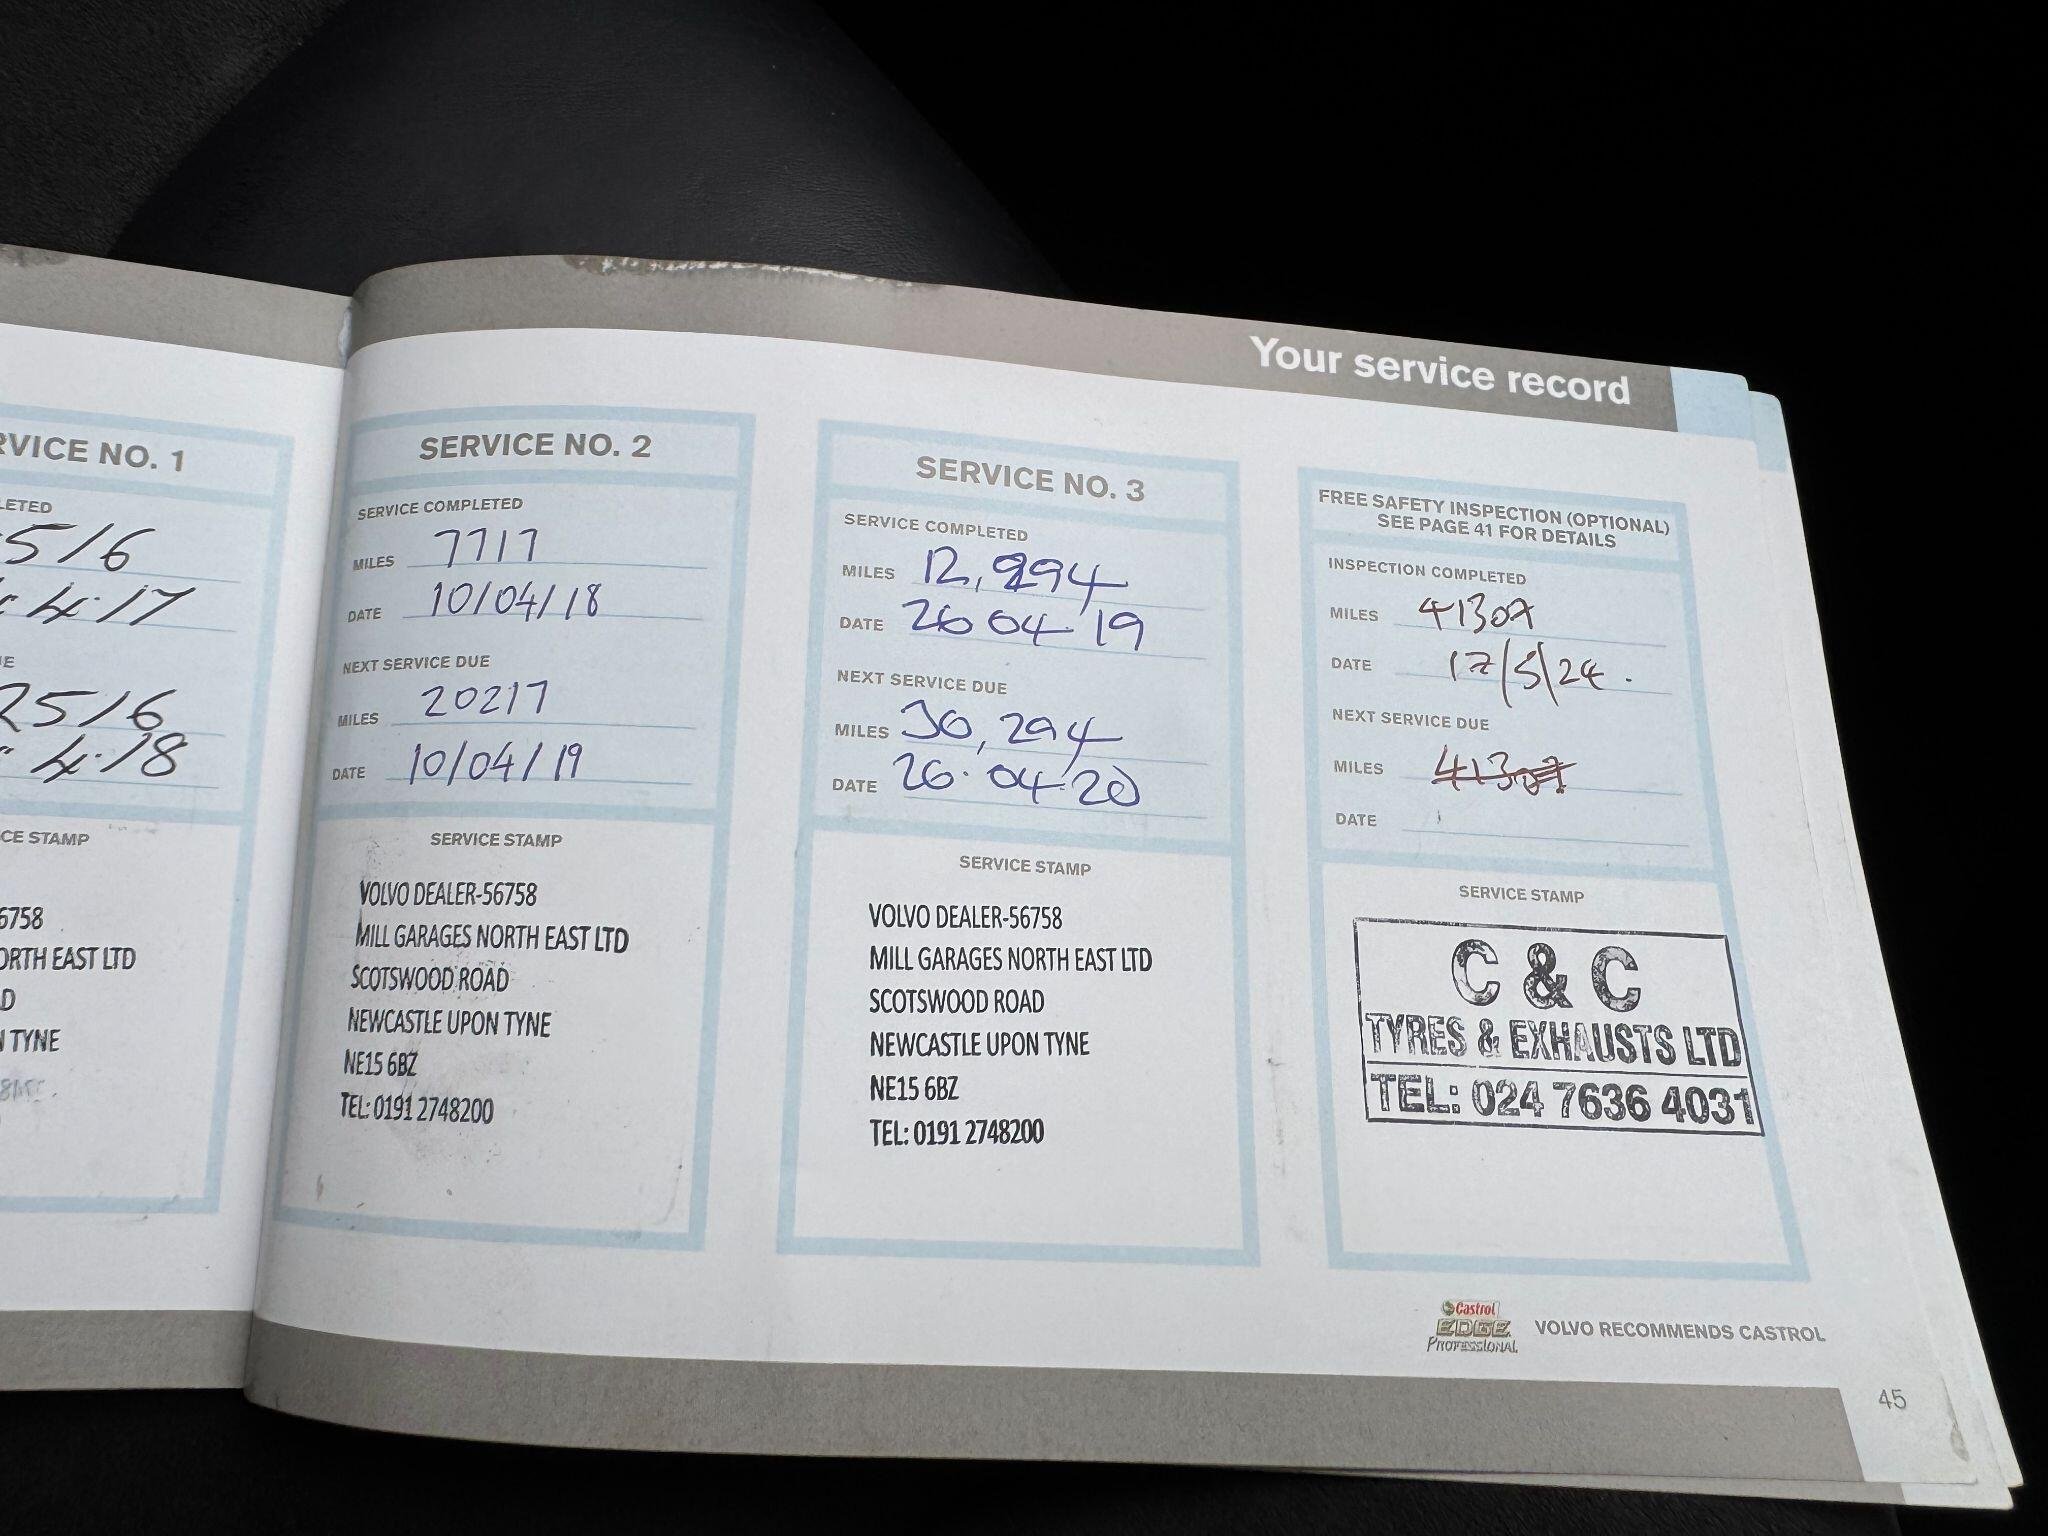 Your service record
RVICE NO. 1
LETED
516
4.17
E
2516
4.18
CE STAMP
6758
ORTH EAST LTD
D
N TYNE
SERVICE NO. 2
SERVICE COMPLETED
MILES 7717
DATE 10/04/18
NEXT SERVICE DUE
MILES 20217
DATE 10/04/19
SERVICE STAMP
VOLVO DEALER-56758
MILL GARAGES NORTH EAST LTD
SCOTSWOOD ROAD
NEWCASTLE UPON TYNE
NE15 6BZ
TEL: 0191 2748200
SERVICE NO. 3
SERVICE COMPLETED
MILES 12,294
DATE 26 04 19
NEXT SERVICE DUE
MILES 30,294
DATE 26.04.20
SERVICE STAMP
VOLVO DEALER-56758
MILL GARAGES NORTH EAST LTD
SCOTSWOOD ROAD
NEWCASTLE UPON TYNE
NE15 6BZ
TEL: 0191 2748200
FREE SAFETY INSPECTION (OPTIONAL)
SEE PAGE 41 FOR DETAILS
INSPECTION COMPLETED
MILES 41307
DATE 17/5/24.
NEXT SERVICE DUE
MILES 41307
DATE
SERVICE STAMP
C & C
TYRES & EXHAUSTS LTD
TEL: 024 7636 4031
Castrol
EDGE
PROFESSIONAL
VOLVO RECOMMENDS CASTROL
45